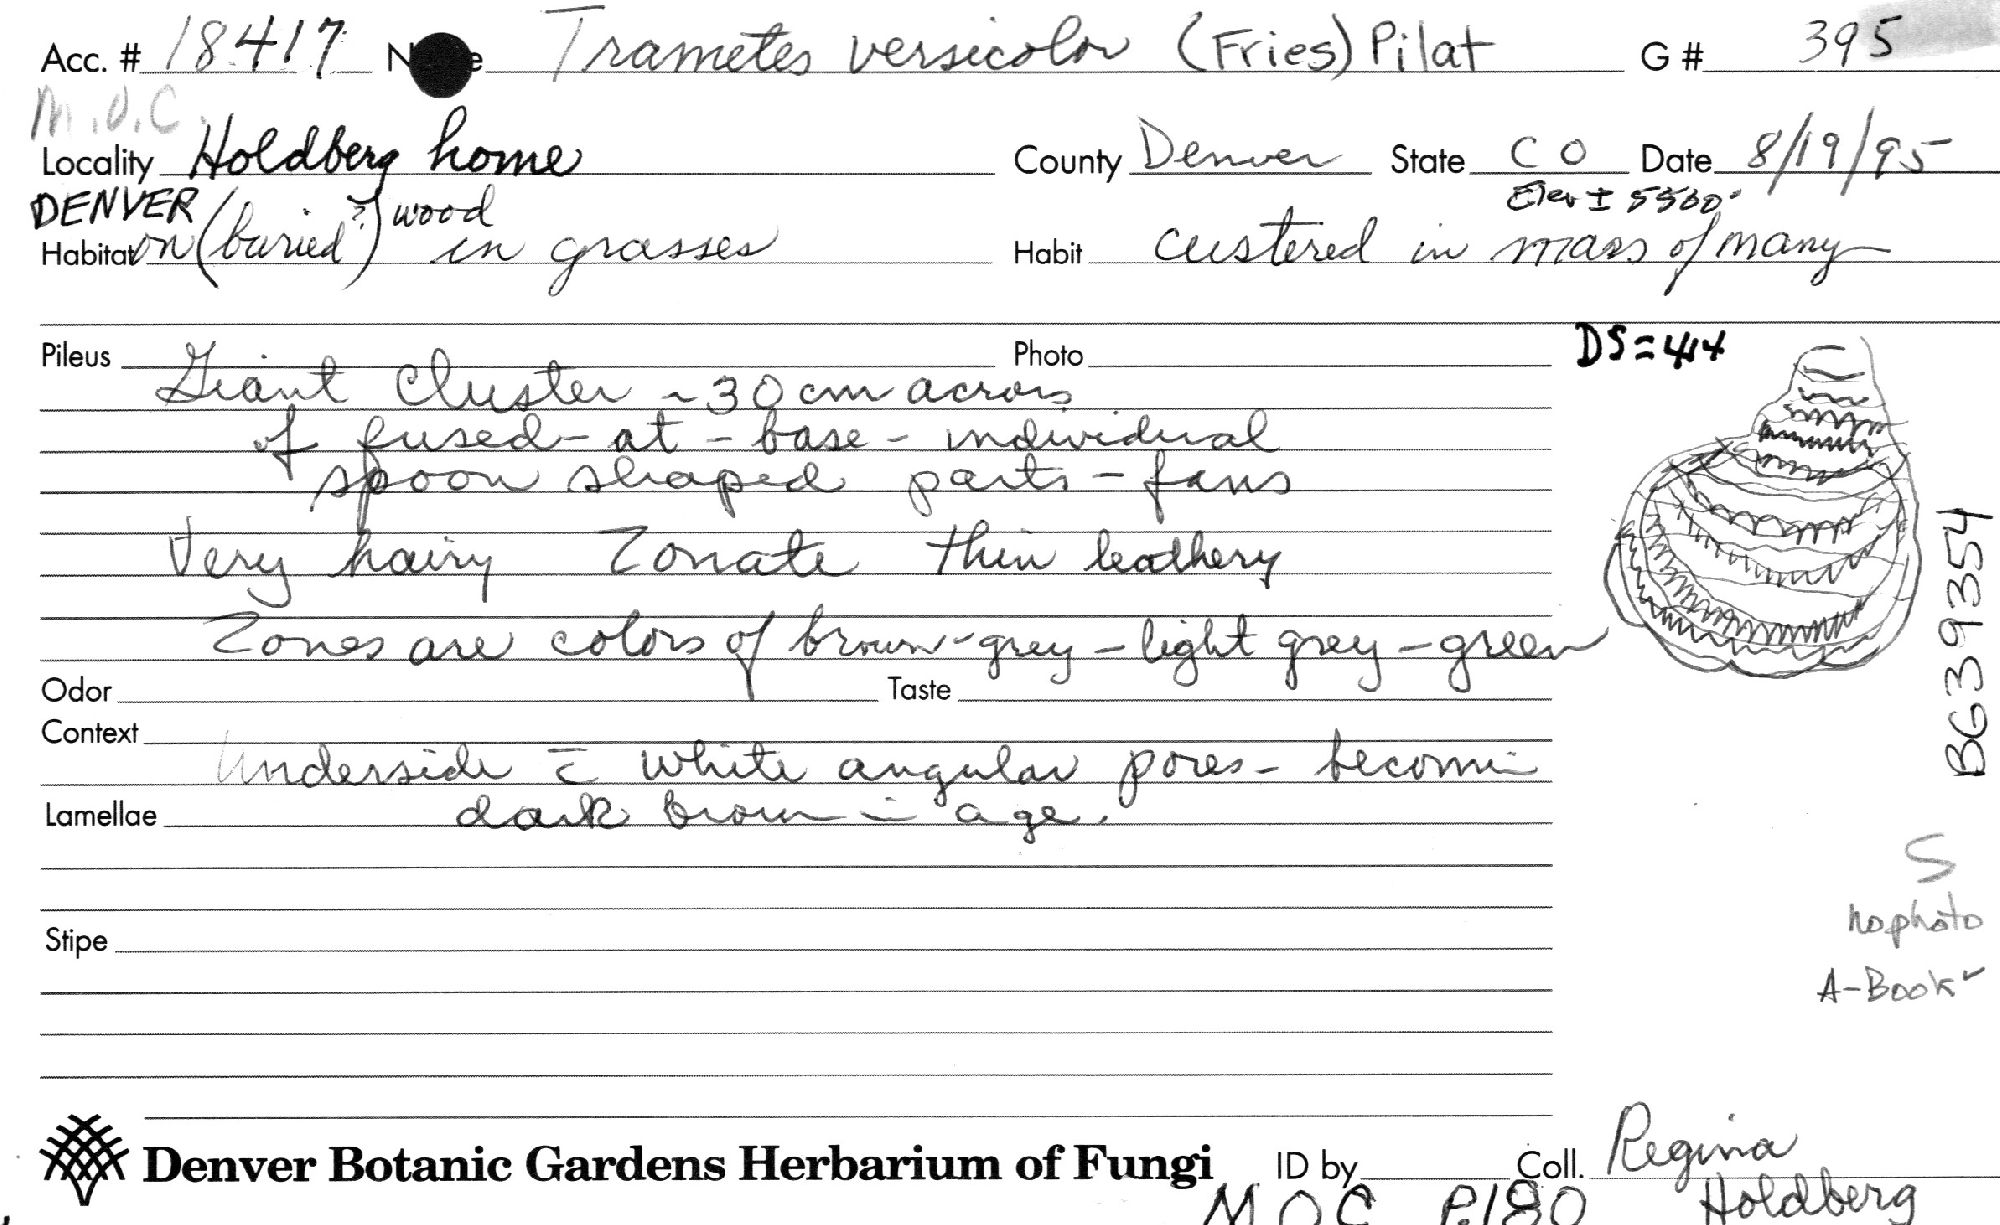 Acc. # 18417 N e Trametes versicolor (Fries) Pilat G # 395
M.O.C.
Locality Holdberg home County Denver State CO Date 8/19/95
DENVER Elev ± 5560'
Habitat on (buried?) wood in grasses Habit custered in mass of many
Pileus Photo DS = 414
Giant Cluster ~30 cm across
of fused-at-base-individual
spoon shaped parts - fans
Very hairy Zonate thin leathery
Zones are colors of brown-grey - light grey - green
Odor Taste
Context
Underside c̄ white angular pores - becomin
Lamellae dark brown in age.
BG39354
S
no photo
A-Book ✓
Stipe
Denver Botanic Gardens Herbarium of Fungi ID by Coll. Regina
MOC P.180 Holdberg